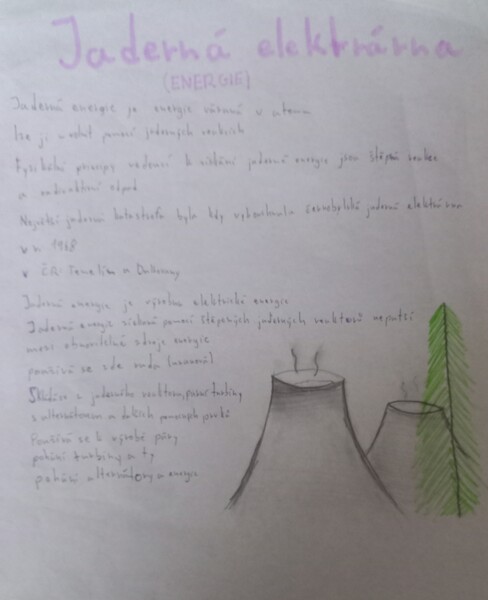 Jaderná elektrárna
(ENERGIE)
Jaderná energie je energie vázaná v atomu
lze ji uvolnit pomocí jaderných reakcích
Fyzikální principy vedoucí k získání jaderné energie jsou štěpná reakce
a radioaktivní odpad
Největší jaderná katastrofa byla kdy vybouchnula černobylská jaderná elektrárna
v r. 1968
v ČR: Temelín a Dukovany
Jaderná energie je výroba elektrické energie
Jaderná energie získaná pomocí štěpných jaderných reaktorů nepatří
mezi obnovitelné zdroje energie
používá se zde ruda (uranová)
Skládá se z jaderného reaktoru, parní turbíny
s alternátorem a dalších pomocných provozů
Používá se k výrobě páry
pohání turbíny a ty
pohání alternátory a energie